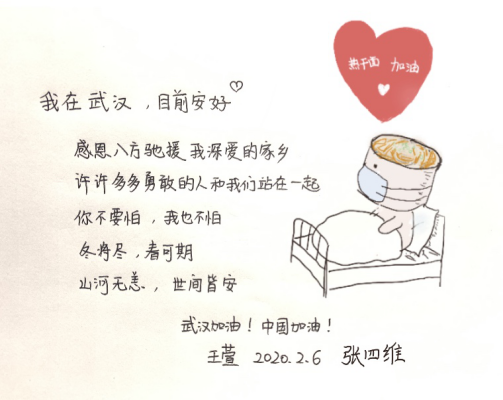 热干面 加油
我在武汉，目前安好
感恩八方驰援我深爱的家乡
许许多多勇敢的人和我们站在一起
你不要怕，我也不怕
冬将尽，春可期
山河无恙，世间皆安
武汉加油！中国加油！
王萱 2020.2.6 张四维